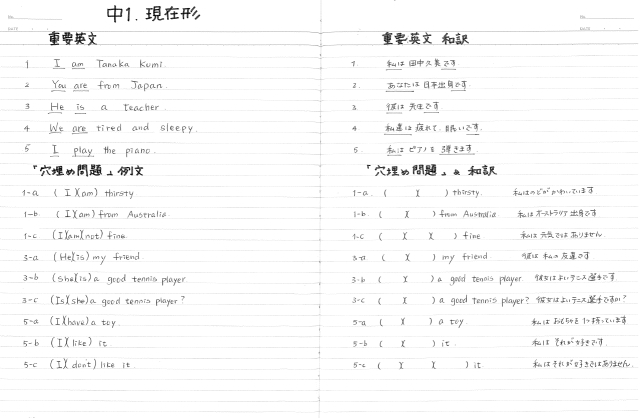 中1. 現在形
重要英文
1 I am Tanaka Kumi.
2 You are from Japan.
3 He is a teacher.
4 We are tired and sleepy.
5 I play the piano.
「穴埋め問題」例文
1-a (I)(am) thirsty.
1-b (I)(am) from Australia.
1-c (I)(am)(not) fine.
3-a (He)(is) my friend.
3-b (She)(is) a good tennis player.
3-c (Is)(she) a good tennis player?
5-a (I)(have) a toy.
5-b (I)(like) it.
5-c (I)(don't) like it.
重要英文 和訳
1. 私は田中久美です
2. あなたは日本出身です.
3. 彼は先生です
4. 私達は疲れて、眠いです.
5. 私はピアノを弾きます.
「穴埋め問題」& 和訳
1-a. ( )( ) thirsty. 私はのどがかわいています
1-b. ( )( ) from Australia. 私はオーストラリア出身です
1-c ( )( )( ) fine 私は元気ではありません.
3-a ( )( ) my friend. 彼は私の友達です
3-b ( )( ) a good tennis player. 彼女はよいテニス選手です.
3-c ( )( ) a good tennis player? 彼女はよいテニス選手ですか?
5-a ( )( ) a toy. 私はおもちゃを1つ持っています
5-b ( )( ) it. 私はそれが好きです.
5-c ( )( )( ) it 私はそれが好きではありません.